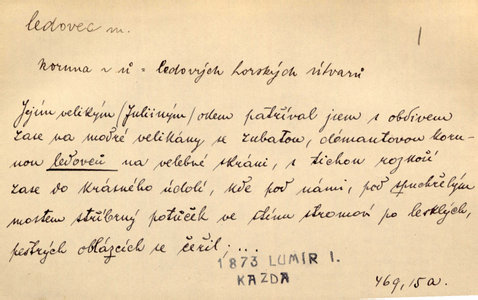 ledovec m.
1
koruna z ů = ledových horských útvarů
Jejím velikým /Juliiným/ odem patříval jsem s obdivem
zase na modré velikány se zubatou, démantovou koru-
nou ledovců na velebné skráni, s tichou rozkoší
zase do krásného údolí, kde pod námi, pod spuchřelým
mostem stříbrný potůček ve stínu stromoví po lesklých,
pestrých oblázcích se čeřil; ...
1873 LUMÍR I.
KAZDA
469,15a.